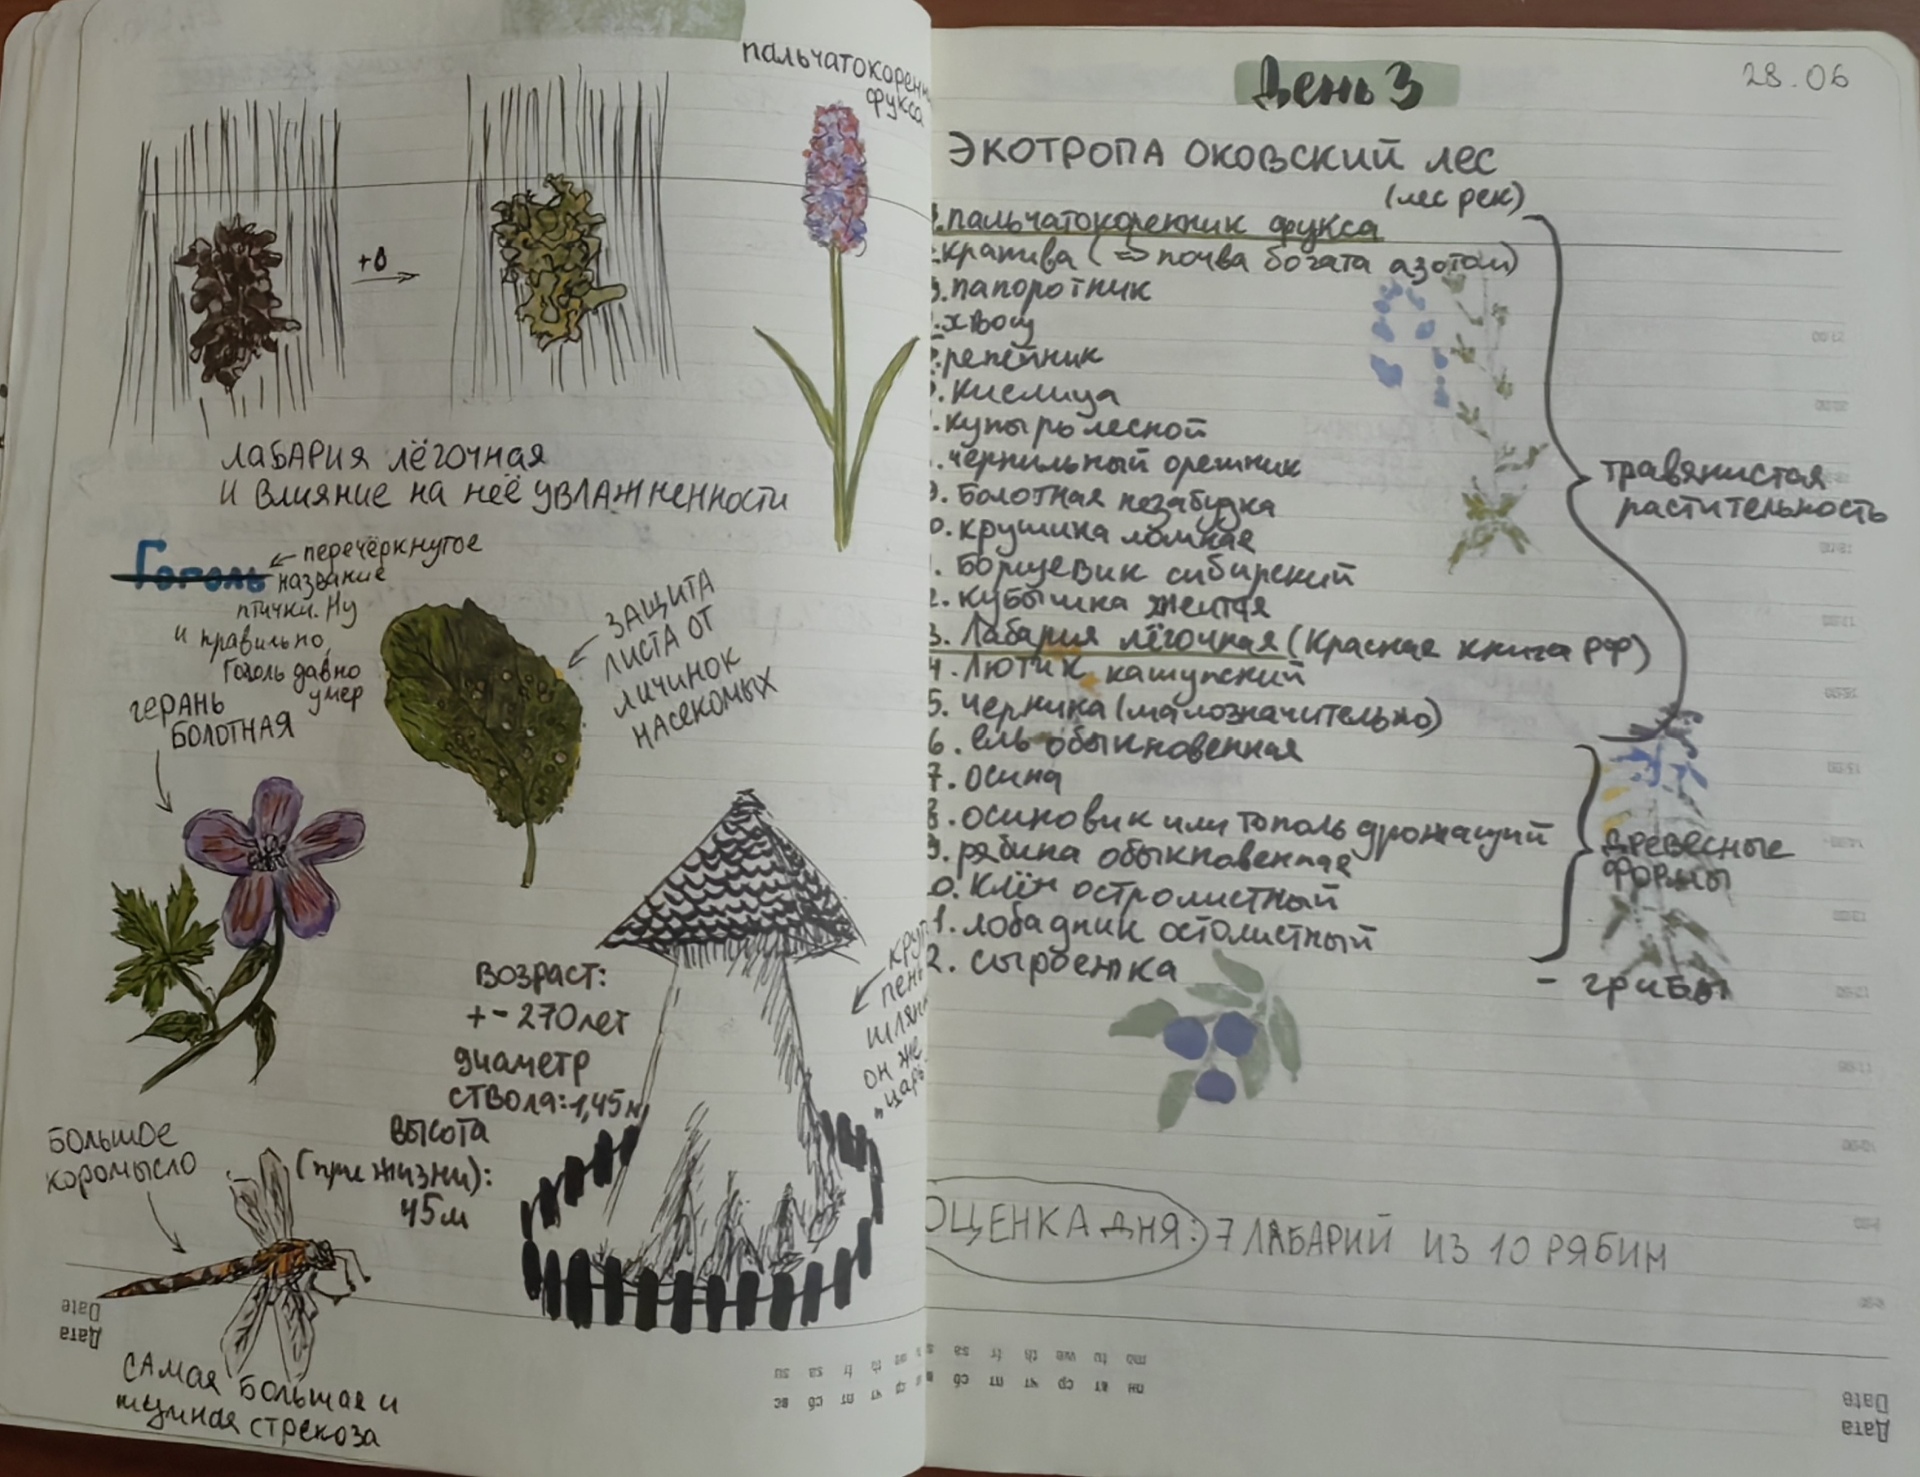 пальчатокорен
фукса
+В
ЛАБАРИЯ ЛЁГОЧНАЯ
И ВЛИЯНИЕ НА НЕЁ УВЛАЖНЕННОСТИ
Гоголь
перечёркнутое
название
птички. Ну
и правильно,
Гоголь давно
умер
ЗАЩИТА
ЛИСТА ОТ
ЛИЧИНОК
НАСЕКОМЫХ
ГЕРАНЬ
БОЛОТНАЯ
Возраст:
+- 270 лет
диаметр
ствола: 1,45м
высота
(при жизни):
45м
круп
пень
шляп
он же
"царь
БОЛЬШОЕ
КОРОМЫСЛО
САМАЯ БОЛЬШАЯ и
шумная стрекоза
Date
Дата
su sa fr th
вс сб пт чт ср
День 3
28.06
ЭКОТРОПА ОКОВСКИЙ ЛЕС
(лес рек)
.пальчатокоренник фукса
крапива (=> почва богата азотом)
.папоротник
.хвощ
.репейник
.кислица
.купырь лесной
.чернильный орешник
9. Болотная незабудка
0. крушина ломкая
. Борщевик сибирский
2. кубышка желтая
3. Лабария лёгочная (Красная книга РФ)
4. Лютик кашупский
5. черника (малозначительно)
6. ель обыкновенная
7. осина
8. осиновик или тополь дрожащий
9. рябина обыкновенная
0. Клён остролистный
1. лобадник остолистный
2. сыробежка
травянистая
растительность
древесные
формы
- грибы
ОЦЕНКА ДНЯ: 7 ЛАБАРИЙ ИЗ 10 РЯБИН
mo tu we th fr sa
пн вт ср чт пт сб
Date
Дата